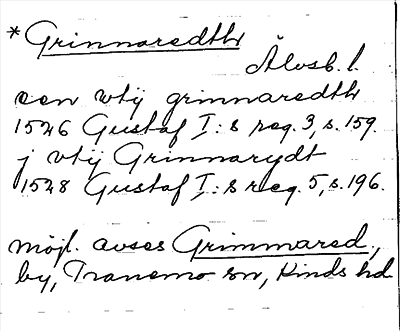 * Grinnaredth
Älvsb. l.
een vtij grinnaredth
1526 Gustaf I:s reg. 3, s. 159.
j vtij Grinnarydt
1528 Gustaf I:s reg. 5, s. 196.
möjl. avses Grimmared,
by, Tranemo sn, Kinds hd